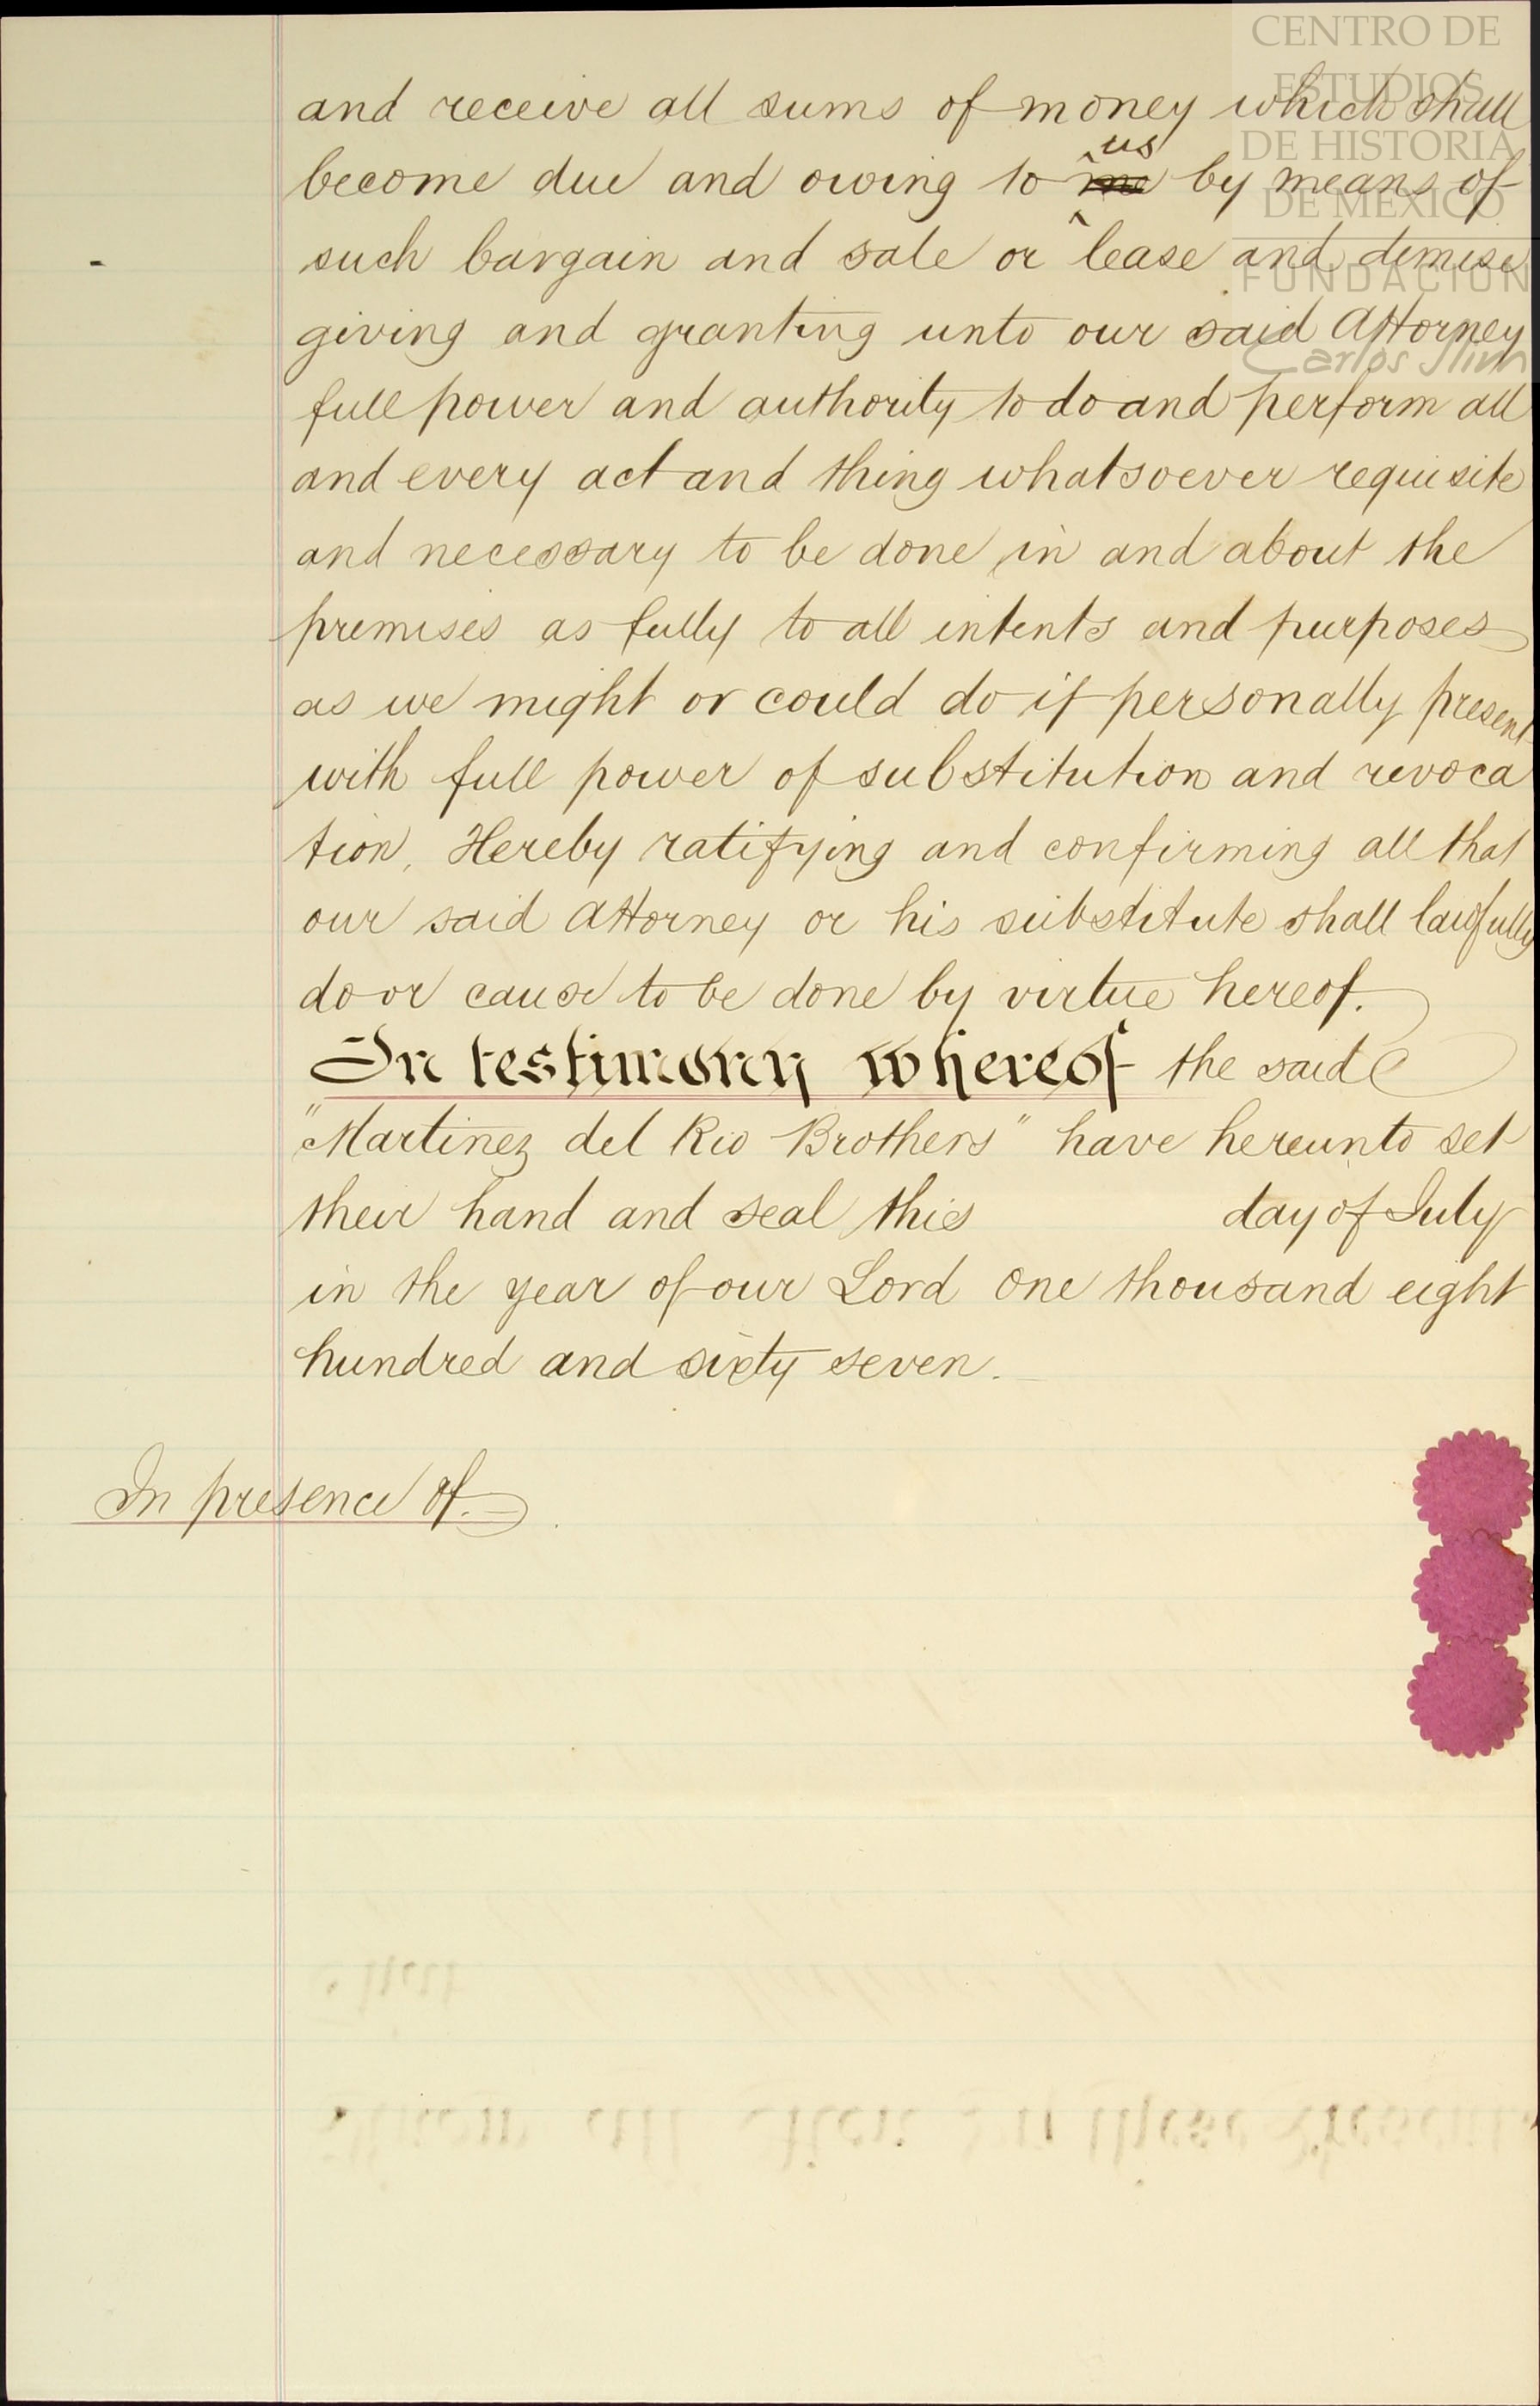 CENTRO DE
ESTUDIOS
DE HISTORIA
DE MEXICO
FUNDACION
Carlos Slim
and receive all sums of money which shall
become due and owing to me us by means of
such bargain and sale or lease and demise
giving and granting unto our said Attorney
full power and authority to do and perform all
and every act and thing whatsoever requisite
and necessary to be done in and about the
premises as fully to all intents and purposes
as we might or could do if personally present
with full power of substitution and revoca
tion, Hereby ratifying and confirming all that
our said Attorney or his substitute shall lawfully
do or cause to be done by virtue hereof.
In testimony whereof the said
"Martinez del Rio Brothers" have hereunto set
their hand and seal this day of July
in the year of our Lord one thousand eight
hundred and sixty seven.
In presence of.